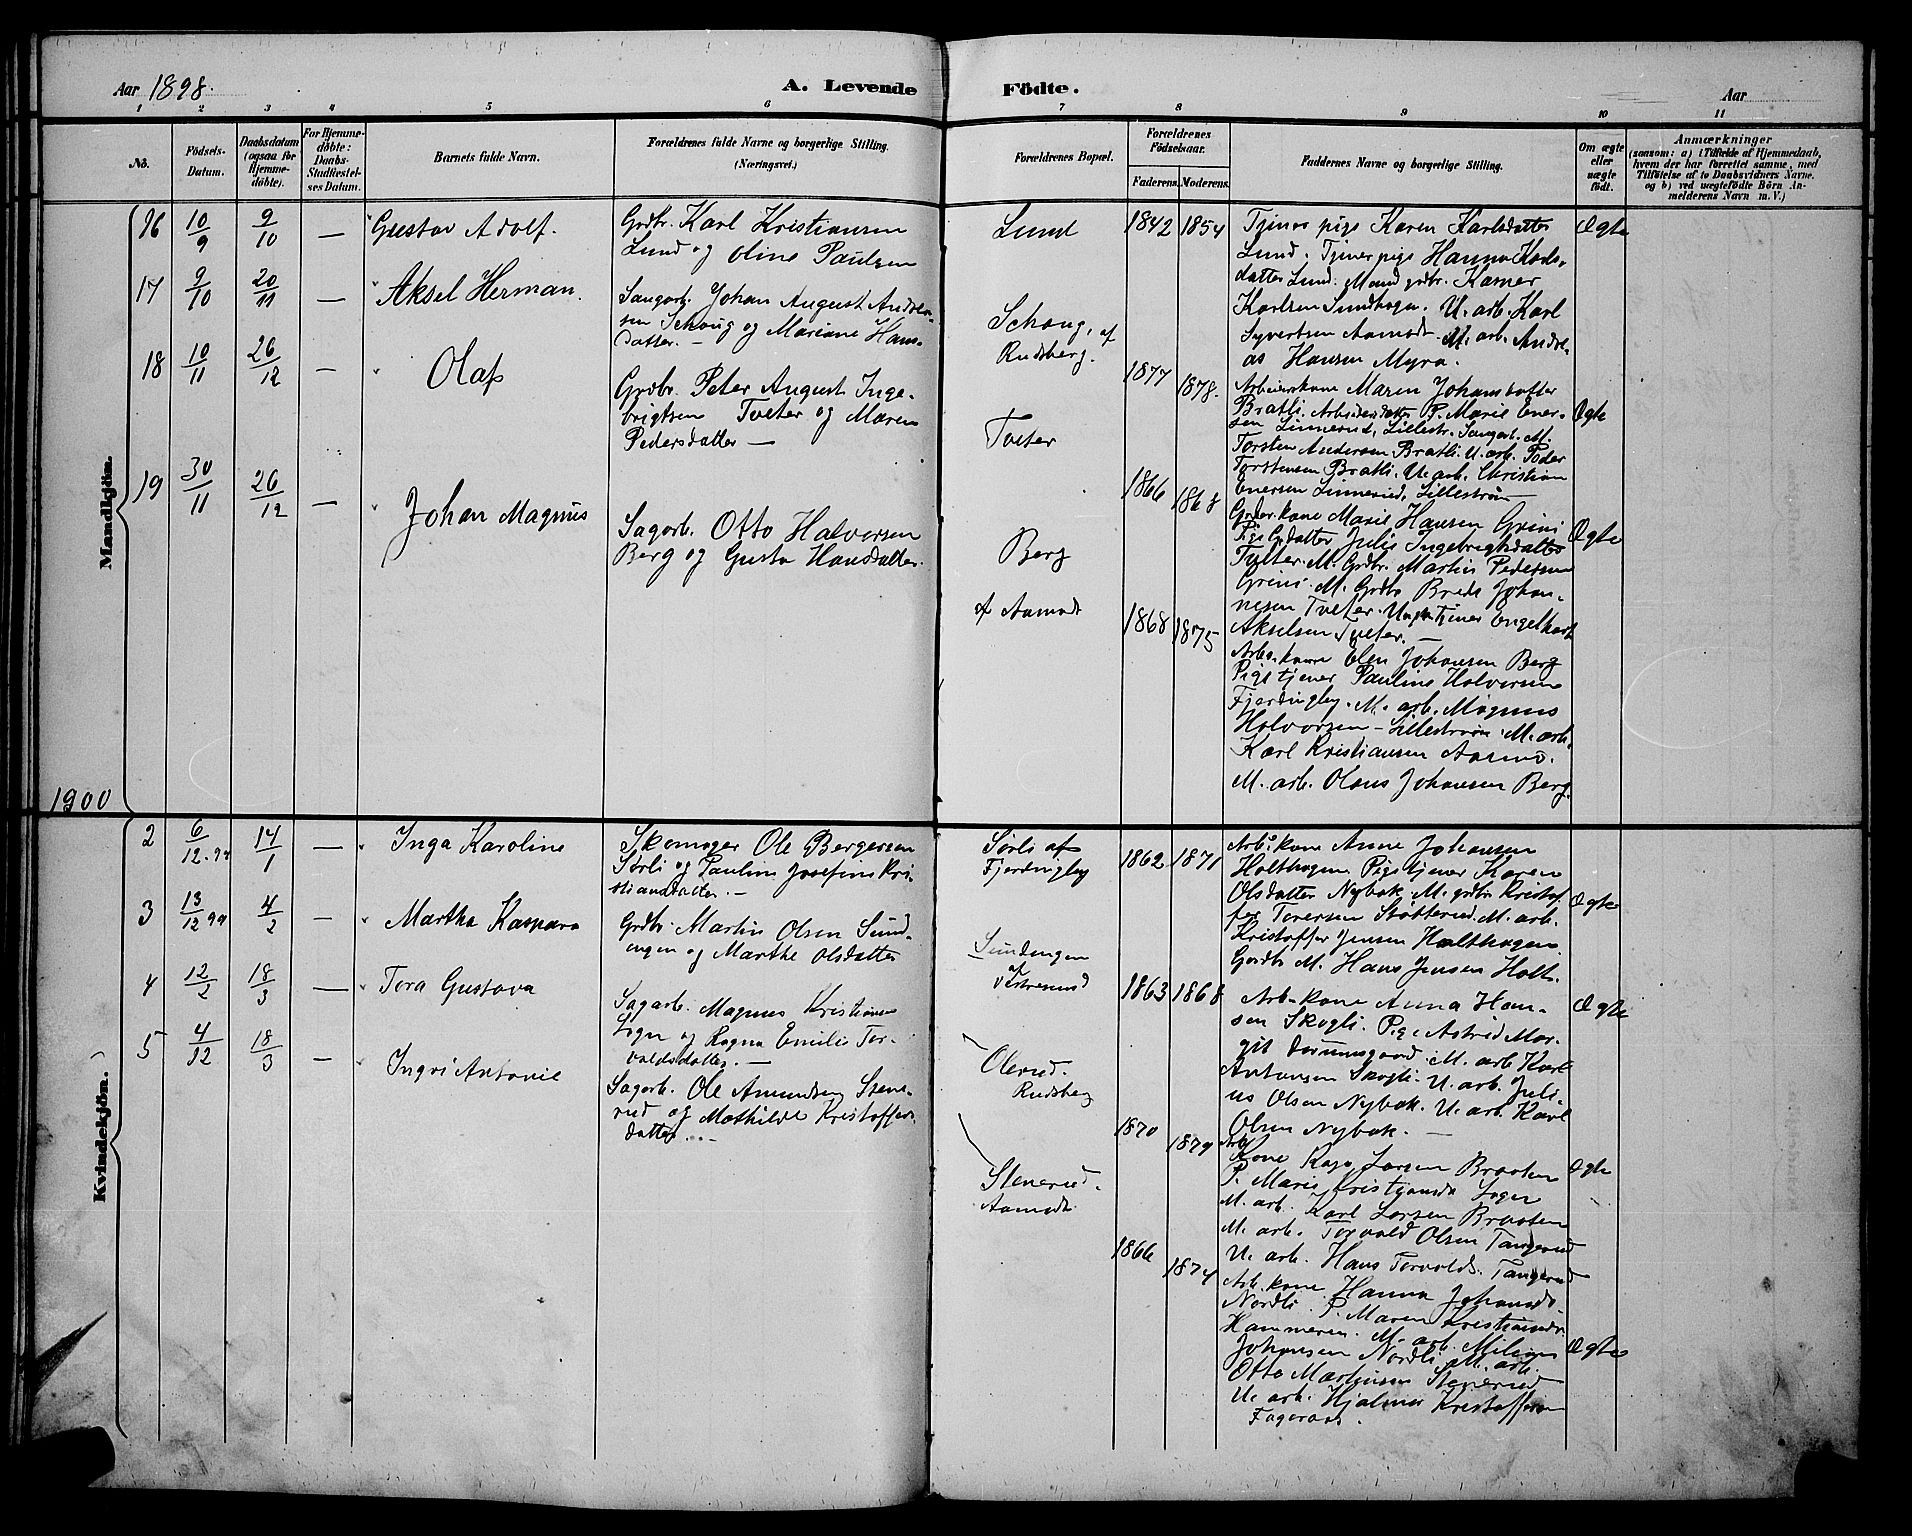 Aar 1898.
A. Levende Födte.
Aar
1 2 3 4 5 6 7 8 9 10 11
No.
Födsels-Datum.
Daabsdatum (ogsaa for Hjemme-döbte).
For Hjemme-döbte: Daabs-Stadfæstel-ses Datum.
Barnets fulde Navn.
Forældrenes fulde Navne og borgerlige Stilling.
(Næringsvei.)
Forældrenes Bopæl.
Forældrenes Födselsaar.
Faderens. Moderens.
Faddernes Navne og borgerlige Stilling.
Om ægte eller uægte födt.
Anmærkninger
(saasom: a) i Tilfælde af Hjemmedaab, hvem der har forrettet samme, med Tilföielse af to Daabsvidners Navne, og b) ved uægtefödte Börn An-melderens Navn m. V.)
Mandkjön.
16 10/9 9/10 — Gustav Adolf.
Grdbr. Karl Kristiansen
Lund og Oline Paulsen
Lund
1842 1854
Tjenes pige Karen Karlsdatter
Lund. Tjenerpige Hanna Karls-
datter Lund. Mand grdbr. Kasper
Karlsen Sundhagen. U. arb. Karl
Syvertsen Aamodt. M. arb. Andre-
as Hansen Myra.
Ægte
17 9/10 20/11 — Aksel Herman.
Saugarb. Johan August Andre-
sen Schaug og Mariane Hans-
datter. —
Schaug, af
Rudsberg.
1877 1878.
Arbeiderkone Maren Johansdatter
Bratli. Arbeiderdatter P. Marie Ener-
sen Linnerud, Lillestr. Saugarb. M.
Torsten Andersen Bratli. U. arb. Peder
Torstensen Bratli. U. arb. Christian
Enersen Linnerud, Lillestrøm
Ægte
18 10/11 26/12 — Olaf
Grdbr. Peter August Inge-
brigtsen Tveter og Maren
Pedersdatter —
Tveter
1866 1868
Grdbr. kone Marie Hansen Grini
Pige Gdatter Julie Ingebrigtsdatter
Tveter. M. Grdbr. Martin Pedersen
Grini. M. Grdbr Brede Johan-
nesen Tveter. Ungk. tjener Engelhart
Akselsen Tveter. —
Ægte
19 30/11 26/12 — Johan Magnus
Sagarb. Otto Halvorsen
Berg og Gusta Hansdatter.
Berg
af Aamodt
1868 1875
Arb. kone Elen Johansen Berg
Pige tjener Pauline Halvorsen
Fjerdingby. M. arb. Magnus
Halvorsen — Lillestrøm. M. arb.
Karl Kristiansen Aamod.
M. arb. Olaus Johansen Berg.
1900
Kvindekjön.
2 6/12.99 14/1 — Inga Karoline
Skomager Ole Bergersen
Sørli og Pauline Josefine Kri-
stiansdatter. —
Sørli af
Fjerdingby
1862 1871
Arb. kone Anne Johansen
Holthagen Pige tjener Karen
Olsdatter Nybak. M. grdbr Kristof-
fer Toresen Stotterud. M. arb.
Kristoffer Jensen Holthagen
Gaardbr M. Hans Jensen Holt.
Ægte
3 13/12 99 4/2 — Martha Kaspara
Grdbr. Martin Olsen Sund-
engen og Marthe Olsdatter
Sundengen
af
Østresund
1863 1868
Arb. kone Anna Han-
sen Skogli. Pige Astrid Mar-
git Tørumsgaard. M. arb Karl
Antonsen Skogli. U. arb. Juli-
us Olsen Nybak. U. arb. Karl
Olsen Nybak. —
Ægte
4 12/2 18/3 — Tora Gustava
Sagarb. Magnus Kristiansen
og Ragna Emilie Tor-
valdsdatter. —
Olerud.
Rudsberg
1870 1879
Arb.
Kone Kaja Larsen Braaten
P. Marie Kristiansdr
M. arb. Karl Larsen Braaten
M. arb. Torvald Olsen Tangerud
U. arb. Hans Torvalds. Tangerud
Ægte
5 4/12 18/3 — Ingri Antonie
Sagarb. Ole Amundsen Stene-
rud og Mathilde Kristoffers-
datter. —
Stenerud.
Aamodt.
1866 1874
Arb. kone Hanna Johansdr.
Nordli. P. Maren Kristiansdr.
Hammeren. M. arb.
Johansen Nordli. M. arb.
Otto Martinsen Stenerud
U. arb. Hjalmar Kristoffersen
Fageraas.
Ægte